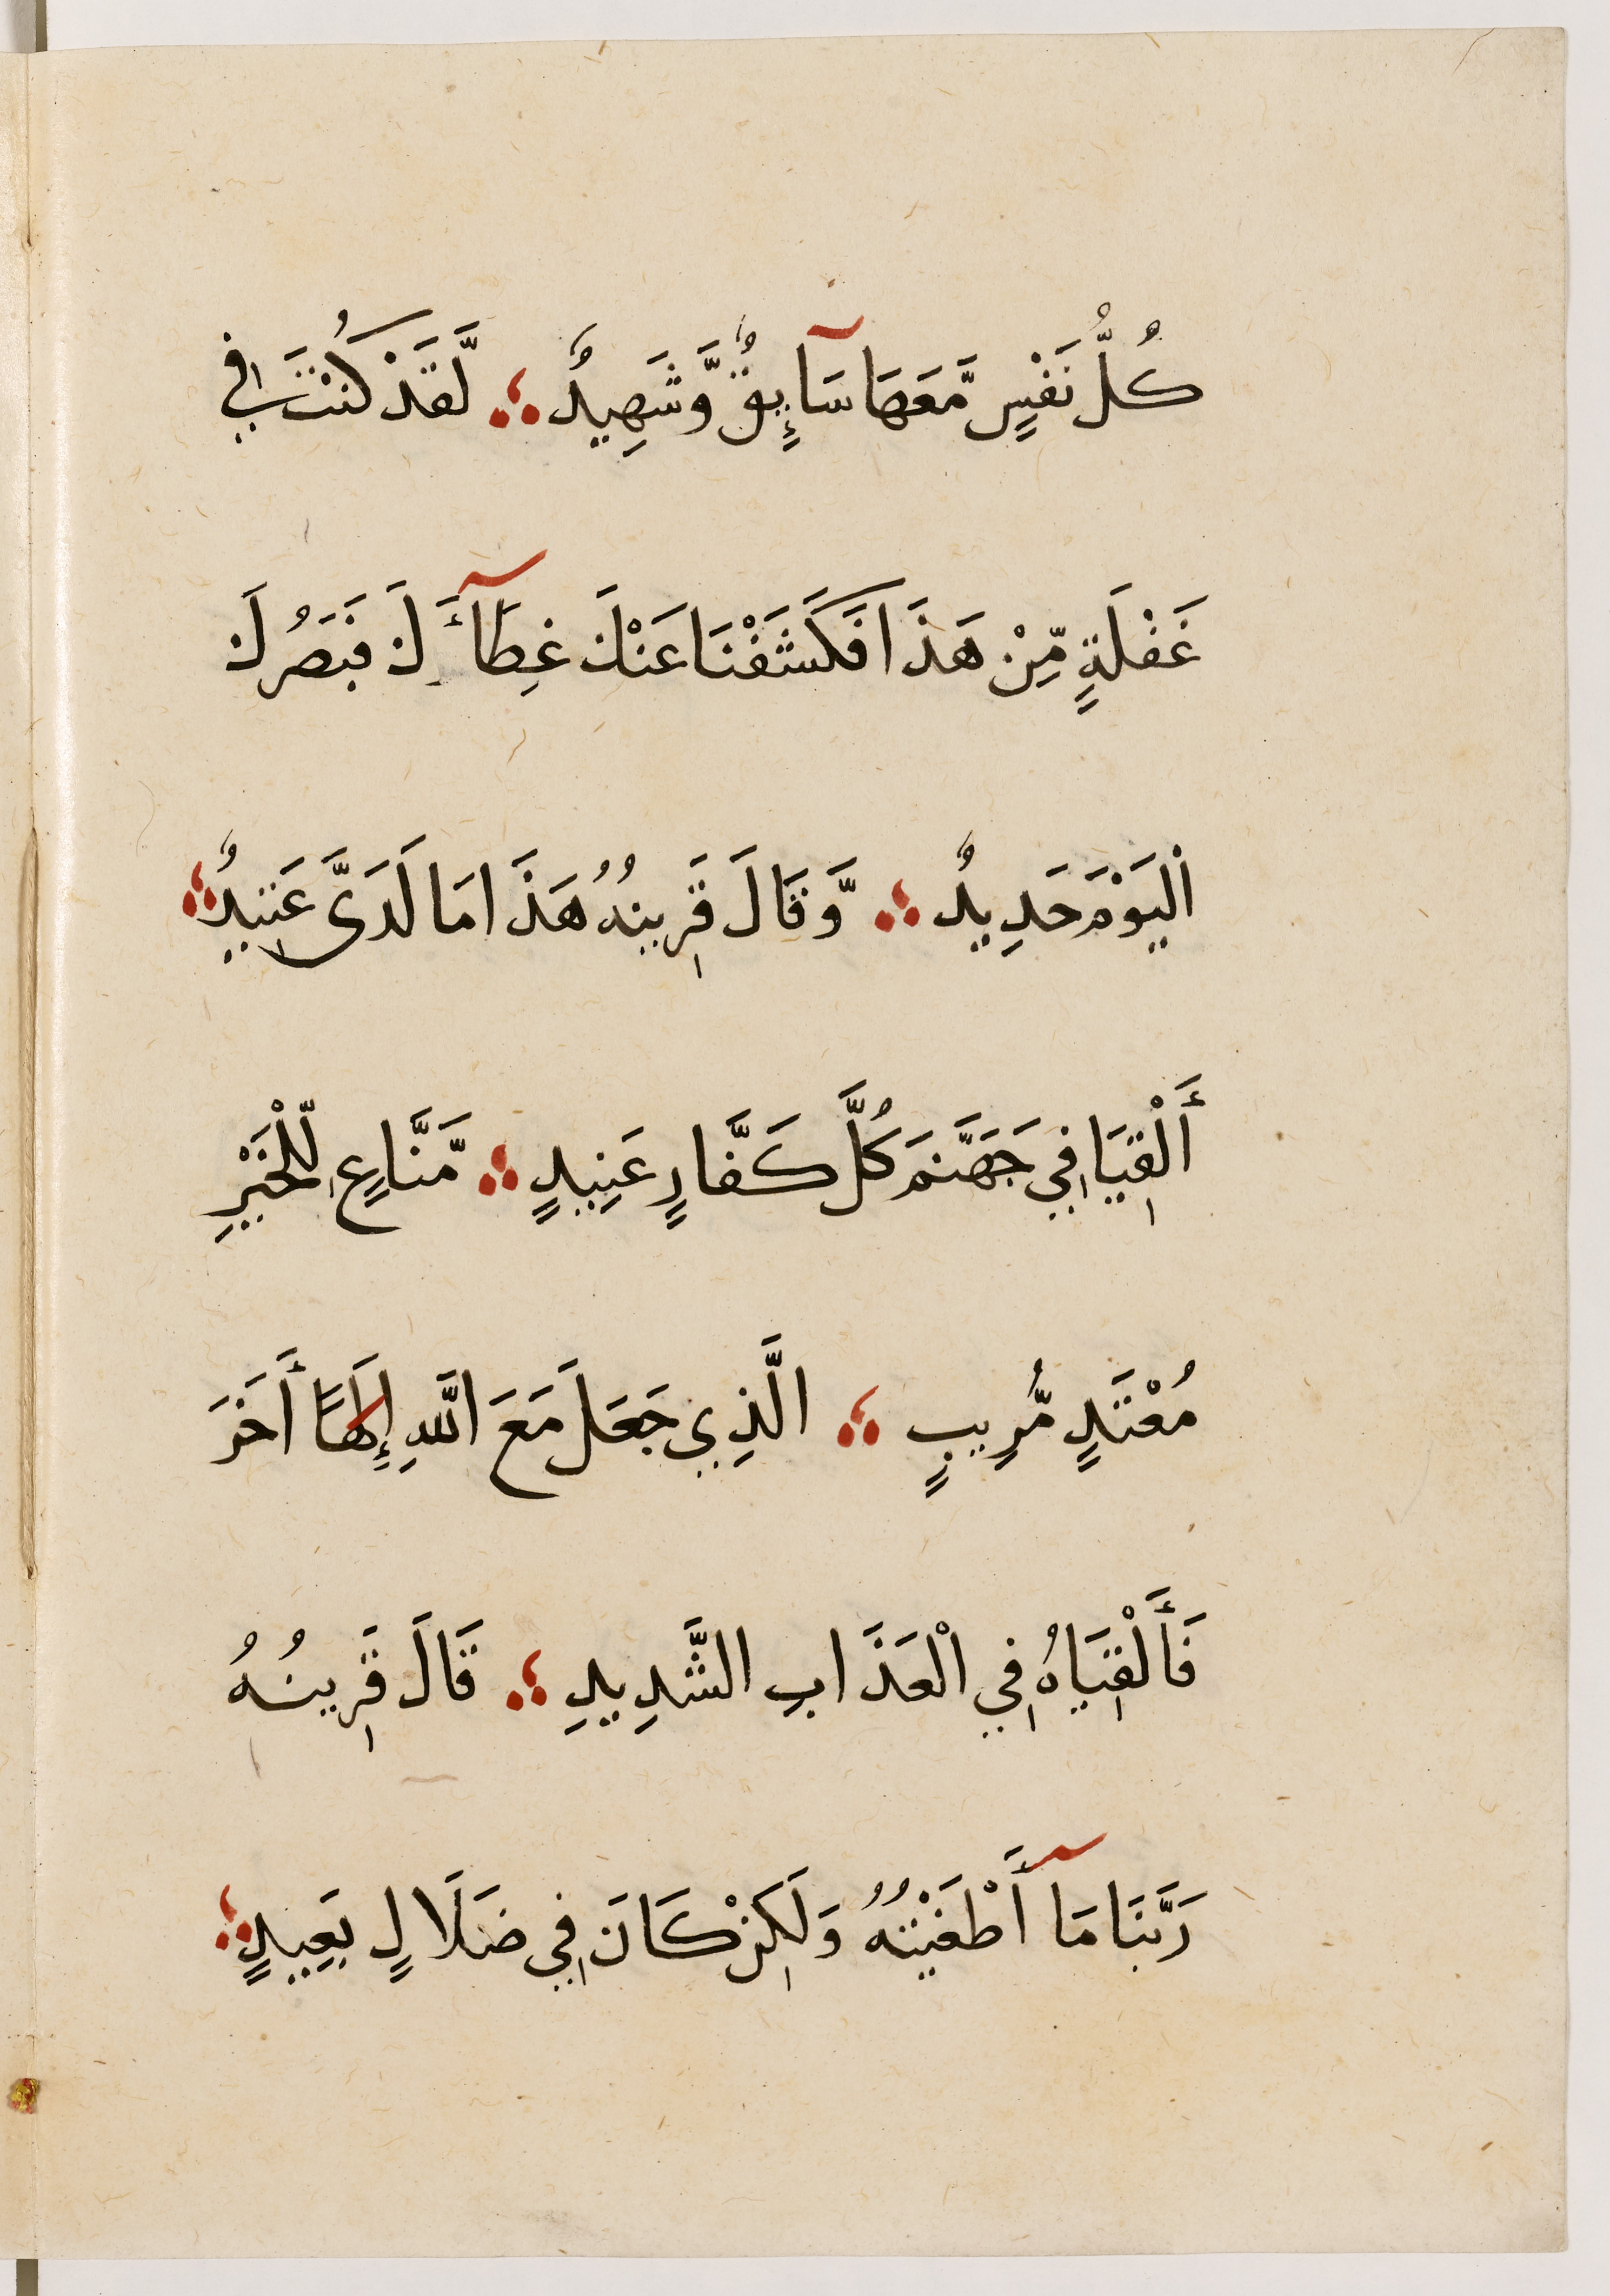 كُلُّ نَفْسٍ مَّعَهَا سَآئِقٌ وَّشَهِيدٌ ؞ لَّقَدْ كُنْتَ فِي
غَفْلَةٍ مِّنْ هَذَا فَكَشَفْنَا عَنْكَ غِطَآءَكَ فَبَصَرُكَ
الْيَوْمَ حَدِيدٌ ؞ وَّقَالَ قَرِينُهُ هَذَا مَا لَدَىَّ عَتِيدٌ ؞
أَلْقِيَا فِي جَهَنَّمَ كُلَّ كَفَّارٍ عَنِيدٍ ؞ مَّنَّاعٍ لِّلْخَيْرِ
مُعْتَدٍ مُّرِيبٍ ؞ الَّذِي جَعَلَ مَعَ اللَّهِ إِلَهًا أَخَرَ
فَأَلْقِيَاهُ فِي الْعَذَابِ الشَّدِيدِ ؞ قَالَ قَرِينُهُ
رَبَّنَا مَآ أَطْغَيْتُهُ وَلَكِنْ كَانَ فِي ضَلَالٍ بَعِيدٍ ؞